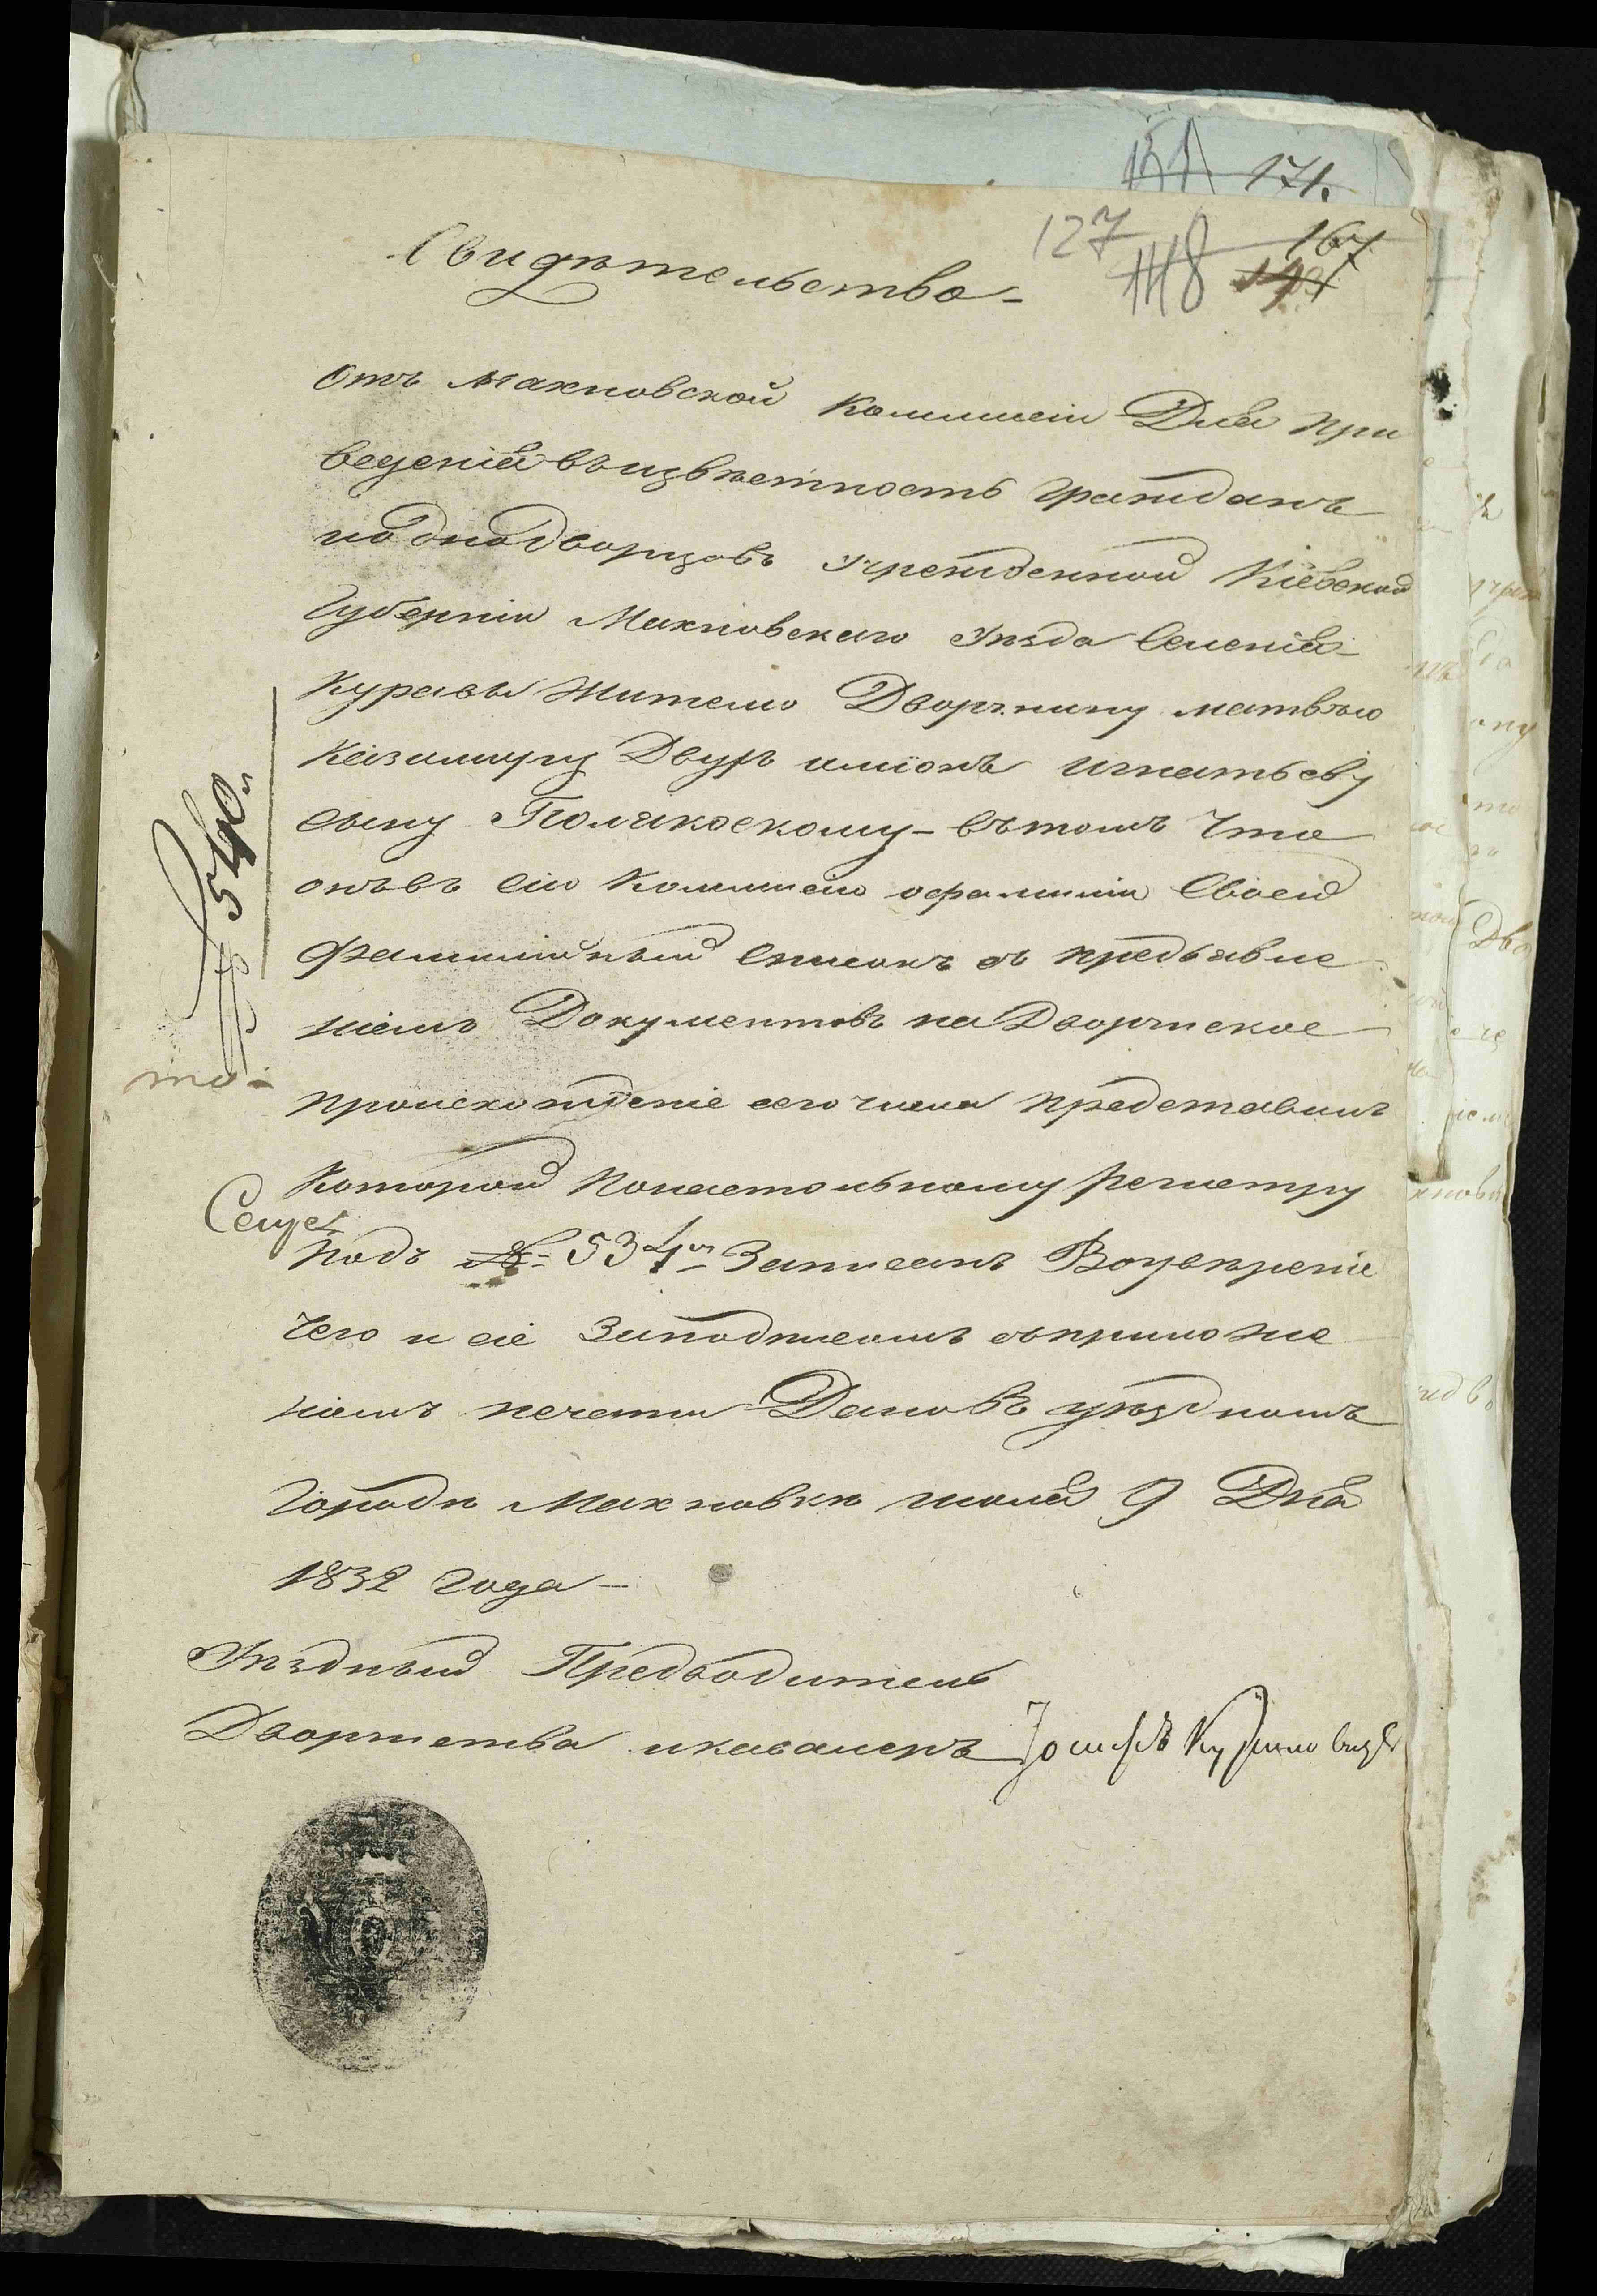 171.
127
167
118
Свидѣтельство
Отъ Махновской Коммисіи Для при
веденія въ извѣстность Гражданъ
и однодворцовъ Учрежденной Кіевской
Губерніи Махновскаго Уѣзда Селенія
Куравы Жителю Дворянину матвѣю
Казимиру Двухъ имiонъ Игнатьеву
сыну Поляковскому - вътомъ Что
онъ въ сію Коммисію офамиліи Своей
Фамилійный списокъ съ предъявле
ніемъ Документовъ на Дворянское
происхожденіе сего числа представилъ
Которой Понастольному регистру
Подъ № 534м Записанъ Воувѣреніе
Чего и сіе Заподписомъ съприложе
ніемъ печати Дано Въ уѣздномъ
Городѣ Махновкѣ июля 9 Дня
1832 Года
Уѣздный Предводитель
Дворянства икавалеръ Іосифъ
540
то